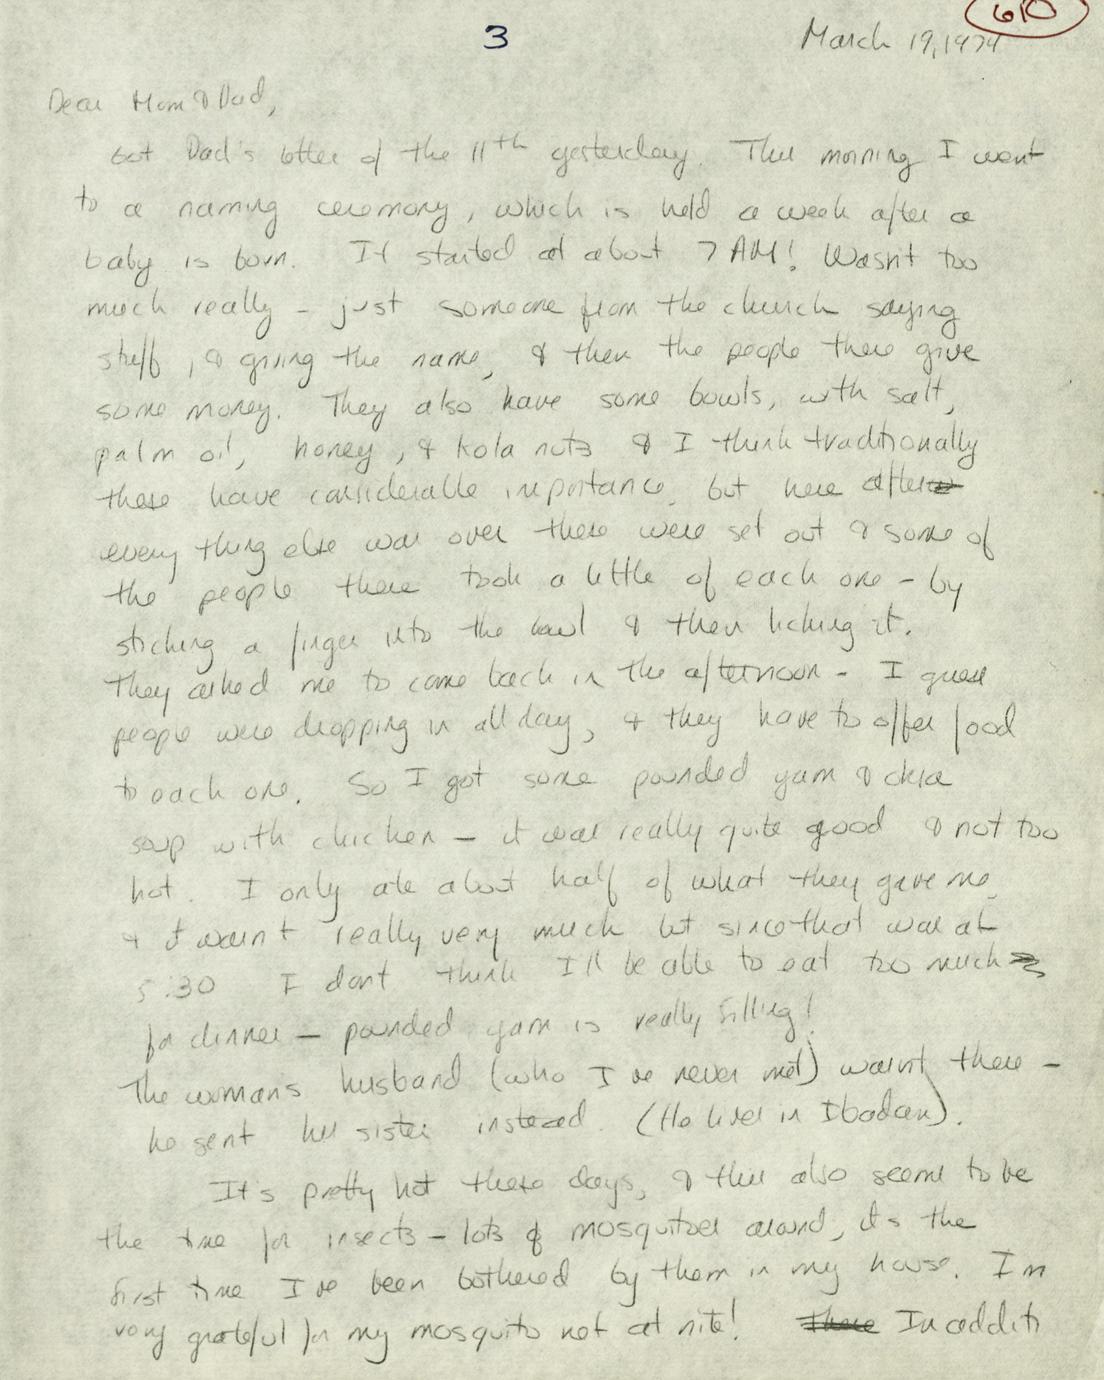 610
3
March 19, 1974
Dear Mom & Dad,
Got Dad's letter of the 11th yesterday. This morning I went
to a naming ceremony, which is held a week after a
baby is born. It started at about 7 AM! Wasn't too
much really - just someone from the church saying
stuff, & giving the name, & then the people there give
some money. They also have some bowls, with salt,
palm oil, honey, & kola nuts & I think traditionally
these have considerable importance, but here after
everything else was over these were set out & some of
the people there took a little of each one - by
sticking a finger into the bowl & then licking it.
They asked me to come back in the afternoon - I guess
people were dropping in all day, & they have to offer food
to each one. So I got some pounded yam & okra
soup with chicken - it was really quite good & not too
hot. I only ate about half of what they gave me,
& it wasn't really very much but since that was at
5:30 I don't think I'll be able to eat too much
for dinner - pounded yam is really filling!
The womans husband (who I've never met) wasn't there -
he sent his sister instead. (He lives in Ibadan).
It's pretty hot these days, & this also seems to be
the time for insects - lots of mosquitoes around, its the
first time I've been bothered by them in my house. I'm
very grateful for my mosquito net at nite! There In additi